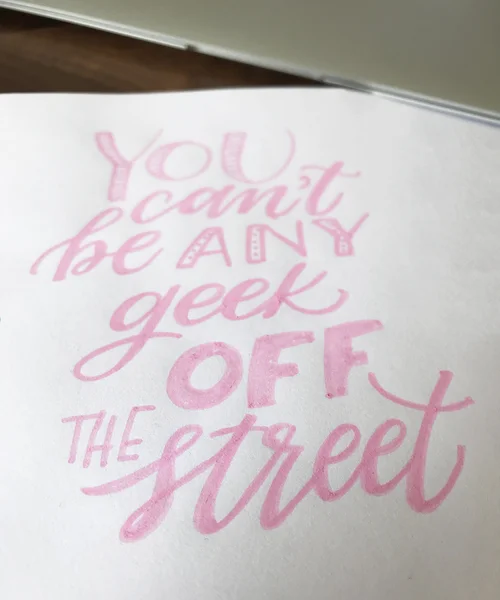 YOU
can't
be ANY
geek
OFF
THE street